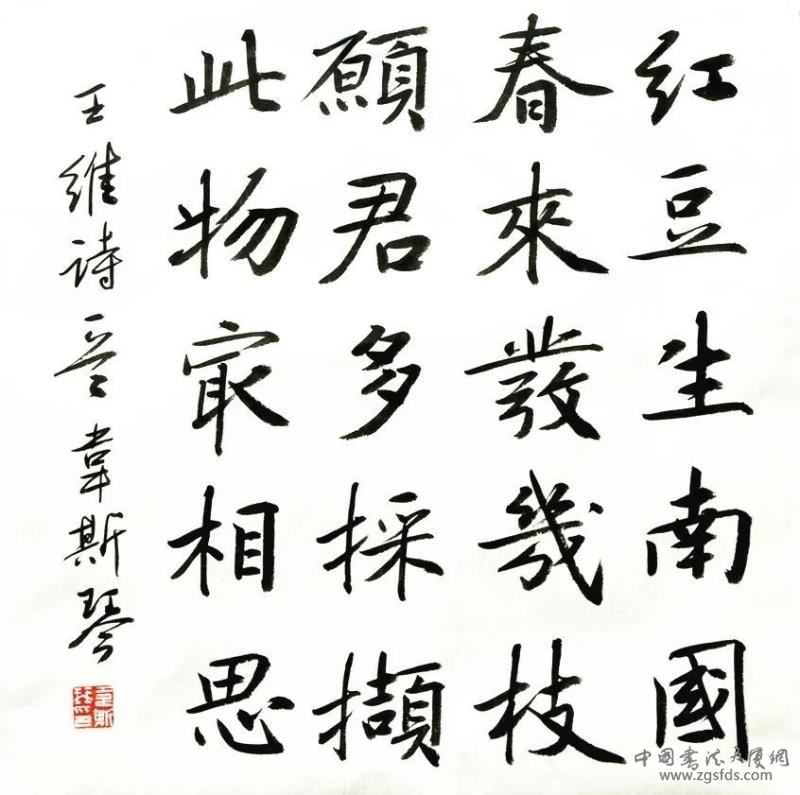 紅豆生南國
春來發幾枝
願君多採擷
此物㝡相思
王維詩 晉 韋斯琴
中國書法大廈網
www.zgsfds.com